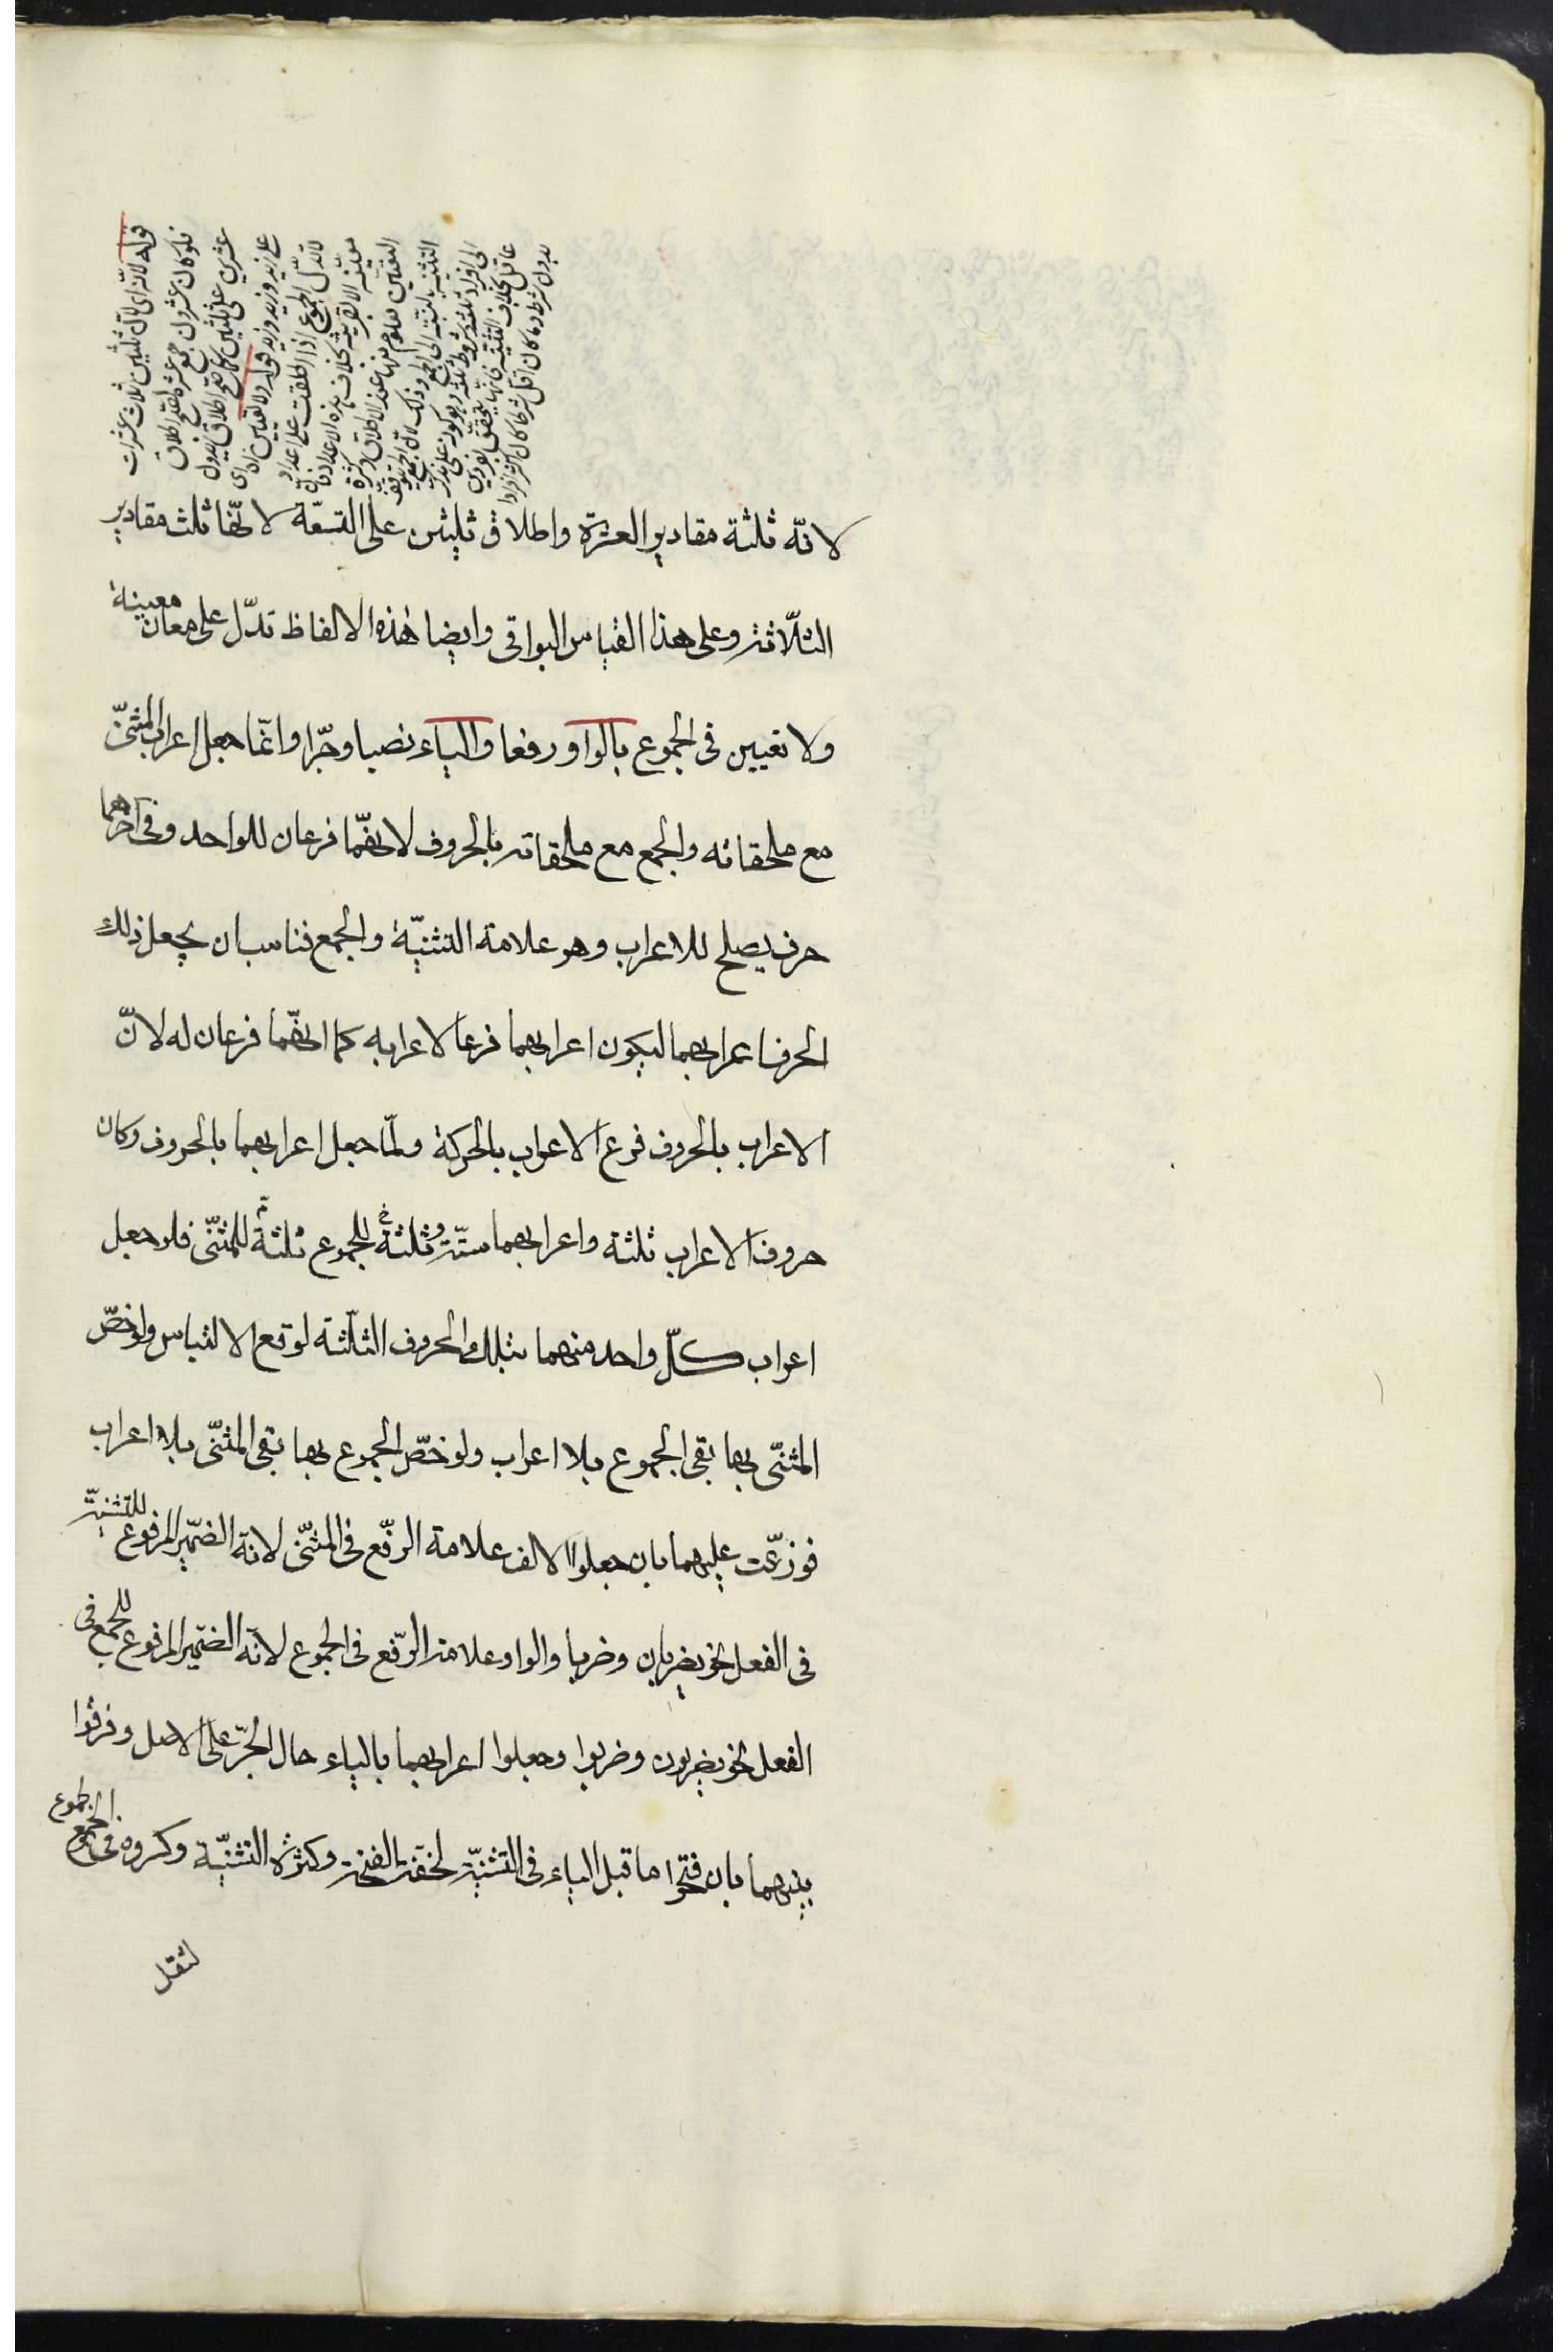 قوله لانّه اى لانّ ثلثين ثلاث عشرات
فلو كان عشرون جمع عشرة لصحّ اطلاق
عشرين على ثلثين كما صحّ اطلاق زيدون
على زيد وزيد وزيد قوله ولا تعيين
لانّه ثلثة مقادير العشرة واطلاق ثلثين على التسعة لانّها ثلث مقادير
الثلاثة وعلى هذا القياس البواقى وايضا هذه الالفاظ تدلّ على معان معينة
ولا تعيين فى الجموع بالواو رفعا والياء نصبا وجرّا وانّما جعل اعراب المثنّى
مع ملحقاته والجمع مع ملحقاته بالحروف لانهّما فرعان للواحد وفى اخرهما
حرف يصلح للاعراب وهو علامة التثنيّة والجمع فناسب ان يجعل ذلك
الحرف اعرابهما ليكون اعرابهما فرعا لاعرابه كما انهّما فرعان له لانّ
الاعراب بالحروف فرع الاعراب بالحركة ولمّا جعل اعرابهما بالحروف وكان
حروف الاعراب ثلثة واعرابهما ستّة وثلثة للجموع ثلثة للمثنّى فلو جعل
اعراب كلّ واحد منهما بتلك الحروف الثلثة لوقع الالتباس ولو خصّ
المثنّى بها بقى الجموع بلا اعراب ولو خصّ الجموع بها بقى المثنّى بلا اعراب
فوزّعت عليهما بان جعلوا الالف علامة الرّفع فى المثنّى لانّه الضّمير المرفوع للتثنيّة
فى الفعل نحو يضربان وضربا والواو علامة الرّفع فى الجموع لانّه الضمّير المرفوع للجمع فى
الفعل نحو يضربون وضربوا وجعلوا اعرابهما بالياء حال الجرّ على الاصل وفرقوا
بينهما بان فتحوا ما قبل الياء فى التثنيّة لخفّة الفتحة وكثرة التثنيّة وكسروه فى الجموع
لثقل